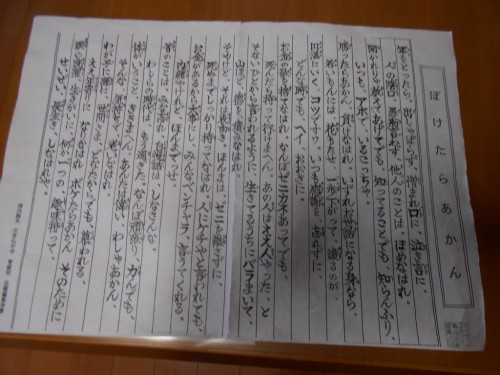 ぼけたらあかん
年をとったら 出しゃばらず 憎まれ口に 泣き言に
人のかげ口 愚痴言わず 他人のことは、ほめなはれ、
聞かれりゃ教えてあげても 知ってることでも 知らんふり、
いつも、アホで いるこっちゃ、
勝ったらあかん 負けなはれ いずれお世話になる身なら、
若いもんには 花もたせ 一歩下がって 譲るのが、
円満にいく、コツですワ いつも感謝を 忘れずに、
どんな時でも、ヘイ、おおきに、
お金の欲を 捨てなはれ なんぼゼニカネあってても、
死んだら持って行けまへん あの人はええ人やった、と
そないにひとから 言われるように 生きてるうちに バラまいて、
山ほど 徳を 積みなはれ
そやけど、それは 表向き ほんまは ゼニを離さずに、
死ぬまでしっかり 持ってなはれ 人にケチやと言われても、
お金があるから 大事にし みんなベンチャラ 言うてくれる、
内緒やけれど、ほんまでっせ、
昔のことは、みな忘れ 自慢話は、しなさんな、
わしらの時代は もう過ぎた、なんぼ頑張り 力んでも、
体がいうこと ききまへん あんたは偉い、わしゃあかん、
そんな 気持で、おりなはれ、
わが子に 孫に 世間さま、どなたからでも 慕われる、
ええ年寄りに なりなはれ ボケたらあかん そのために
頭の洗濯 生きがいに 何か一つの 趣味持って、
せいぜい、長生き しなはれや、